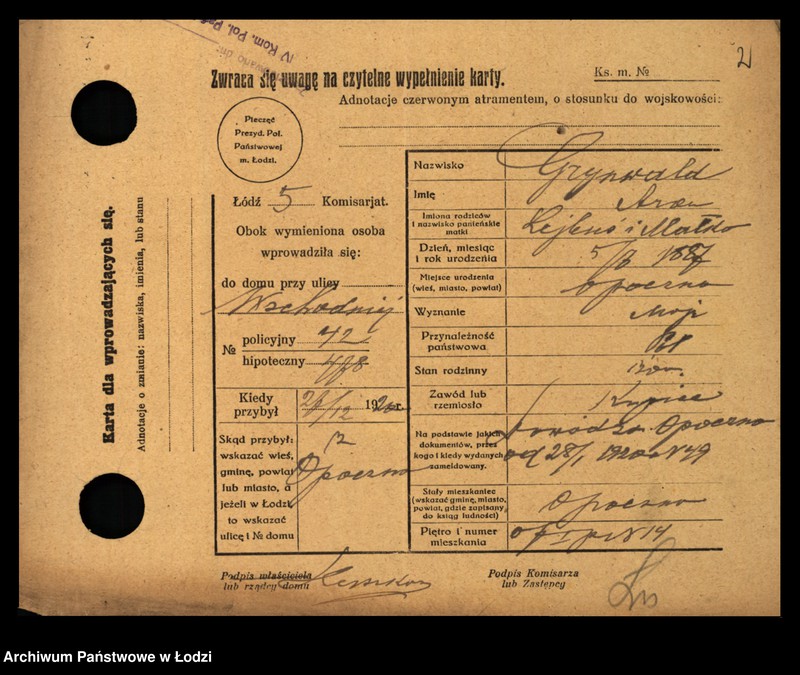 IV Kom. Pol. Pań
2
Zwraca się uwagę na czytelne wypełnienie karty.
Ks. m. №
Adnotacje czerwonym atramentem, o stosunku do wojskowości:
Pieczęć
Prezyd. Pol.
Państwowej
m. Łodzi.
Łódź 5 Komisarjat.
Obok wymieniona osoba
wprowadziła się:
do domu przy ulicy
Wschodniej
№ policyjny 42
hipoteczny 478
Kiedy przybył
192 r.
Skąd przybył:
wskazać wieś,
gminę, powiat
lub miasto, a
jeżeli w Łodzi,
to wskazać
ulicę i № domu
z
Opoczno
Nazwisko Grynwald
Imię Aron
Imiona rodziców
i nazwisko panieńskie
matki
Lejbuś i Małka
Dzień, miesiąc
i rok urodzenia
Miejsce urodzenia
(wieś, miasto, powiat)
Opoczno
Wyznanie Mojż
Przynależność
państwowa
Pol
Stan rodzinny żon.
Zawód lub
rzemiosło
Kupiec
Na podstawie jakich
dokumentów, przez
kogo i kiedy wydanych
zameldowany.
Opoczno
od 28/1 1920 № 49
Stały mieszkaniec
(wskazać gminę, miasto,
powiat, gdzie zapisany
do ksiąg ludności)
Opoczno
Piętro i numer
mieszkania
14
Podpis właściciela
lub rządcy domu
Podpis Komisarza
lub Zastępcy
Karta dla wprowadzających się.
Adnotacje o zmianie: nazwiska, imienia, lub stanu
Archiwum Państwowe w Łodzi